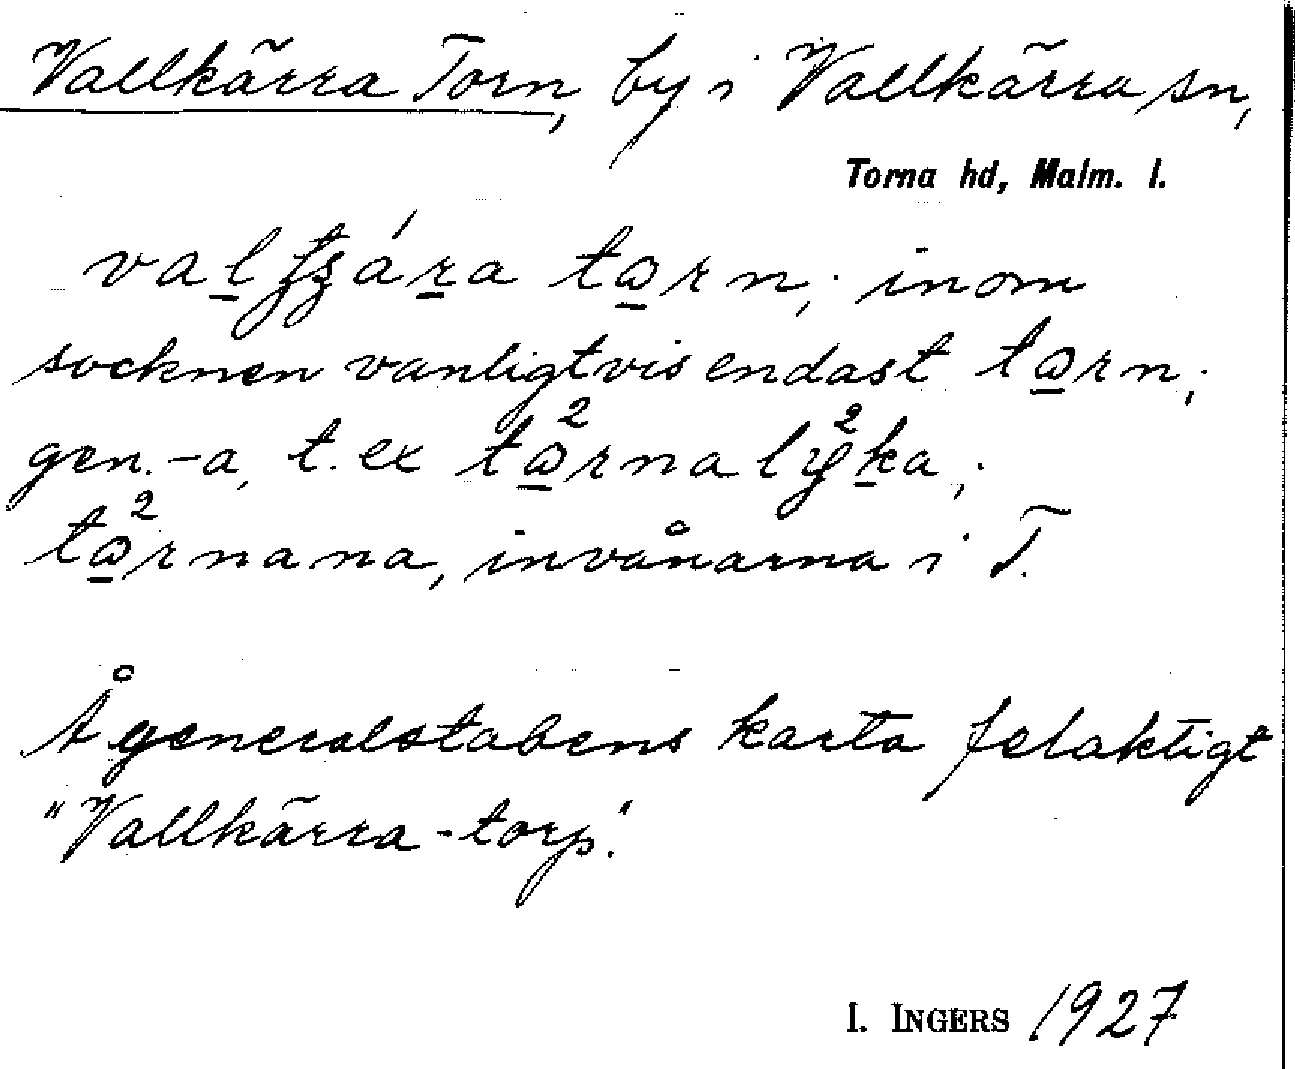 Vallkärra Torn, by i Vallkärra sn,
Torna hd, Malm. l.
tɷrn; inom
socknen vanligtvis endast tɷrn;
gen. -a, t. ex tɷ²rnaly²ka;
tɷ²rnana, invånarna i T.
Å generalstabens karta felaktigt
"Vallkärra-torp".
I. INGERS 1927